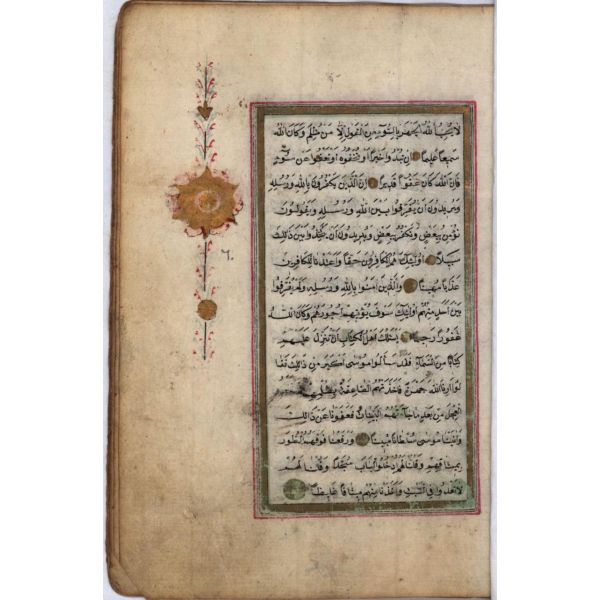 لا يحب الله الجهر بالسوء من القول الا من ظلم وكان الله
سميعا عليما ان تبدوا خيرا او تخفوه او تعفوا عن سوء
فان الله كان عفوا قديرا ان الذين يكفرون بالله ورسله
ويريدون ان يفرقوا بين الله ورسله ويقولون
نؤمن ببعض ونكفر ببعض ويريدون ان يتخذوا بين ذلك
سبيلا اولئك هم الكافرون حقا واعتدنا للكافرين
عذابا مهينا والذين امنوا بالله ورسله ولم يفرقوا
بين احد منهم اولئك سوف يؤتيهم اجورهم وكان الله
غفورا رحيما يسئلك اهل الكتاب ان تنزل عليهم
كتابا من السماء فقد سألوا موسى اكبر من ذلك فقا
لوا ارنا الله جهرة فاخذتهم الصاعقة بظلمهم
العجل من بعد ما جاءتهم البينات فعفونا عن ذلك
واتينا موسى سلطانا مبينا ورفعنا فوقهم الطور
بميثاقهم وقلنا لهم ادخلوا الباب سجدا وقلنا لهم
لا تعدوا في السبت واخذنا منهم ميثاقا غليظا
٦٠